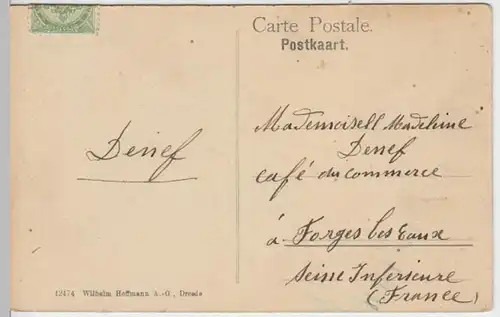 Carte Postale.
Postkaart.
Denef
Mademoisell Madeleine
Denef
café du commerce
à Forges les Eaux
Seine Inferieure
(France)
12474 Wilhelm Hoffmann A.-G., Dresde